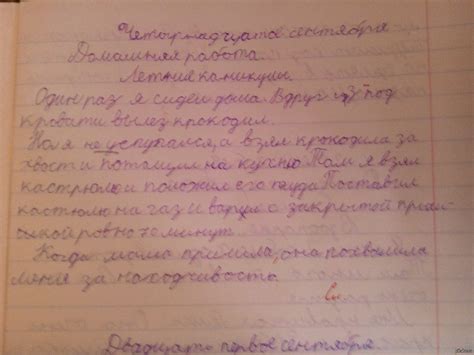 Четырнадцатое сентября
Домашняя работа.
Летние каникулы.
Один раз я сидел дома. Вдруг из под
кровати вылез крокодил.
Но я не успугался, а взял крокодила за
хвост и потащил на кухню. Там я взял
кастрюлю и положил его туда. Поставил
кастюлю на газ и варил с закрытой
кой ровно 70 минут.
Когда мама пришла, она похвалила
меня за находчивость.
См.
Двадцать первое сентября.